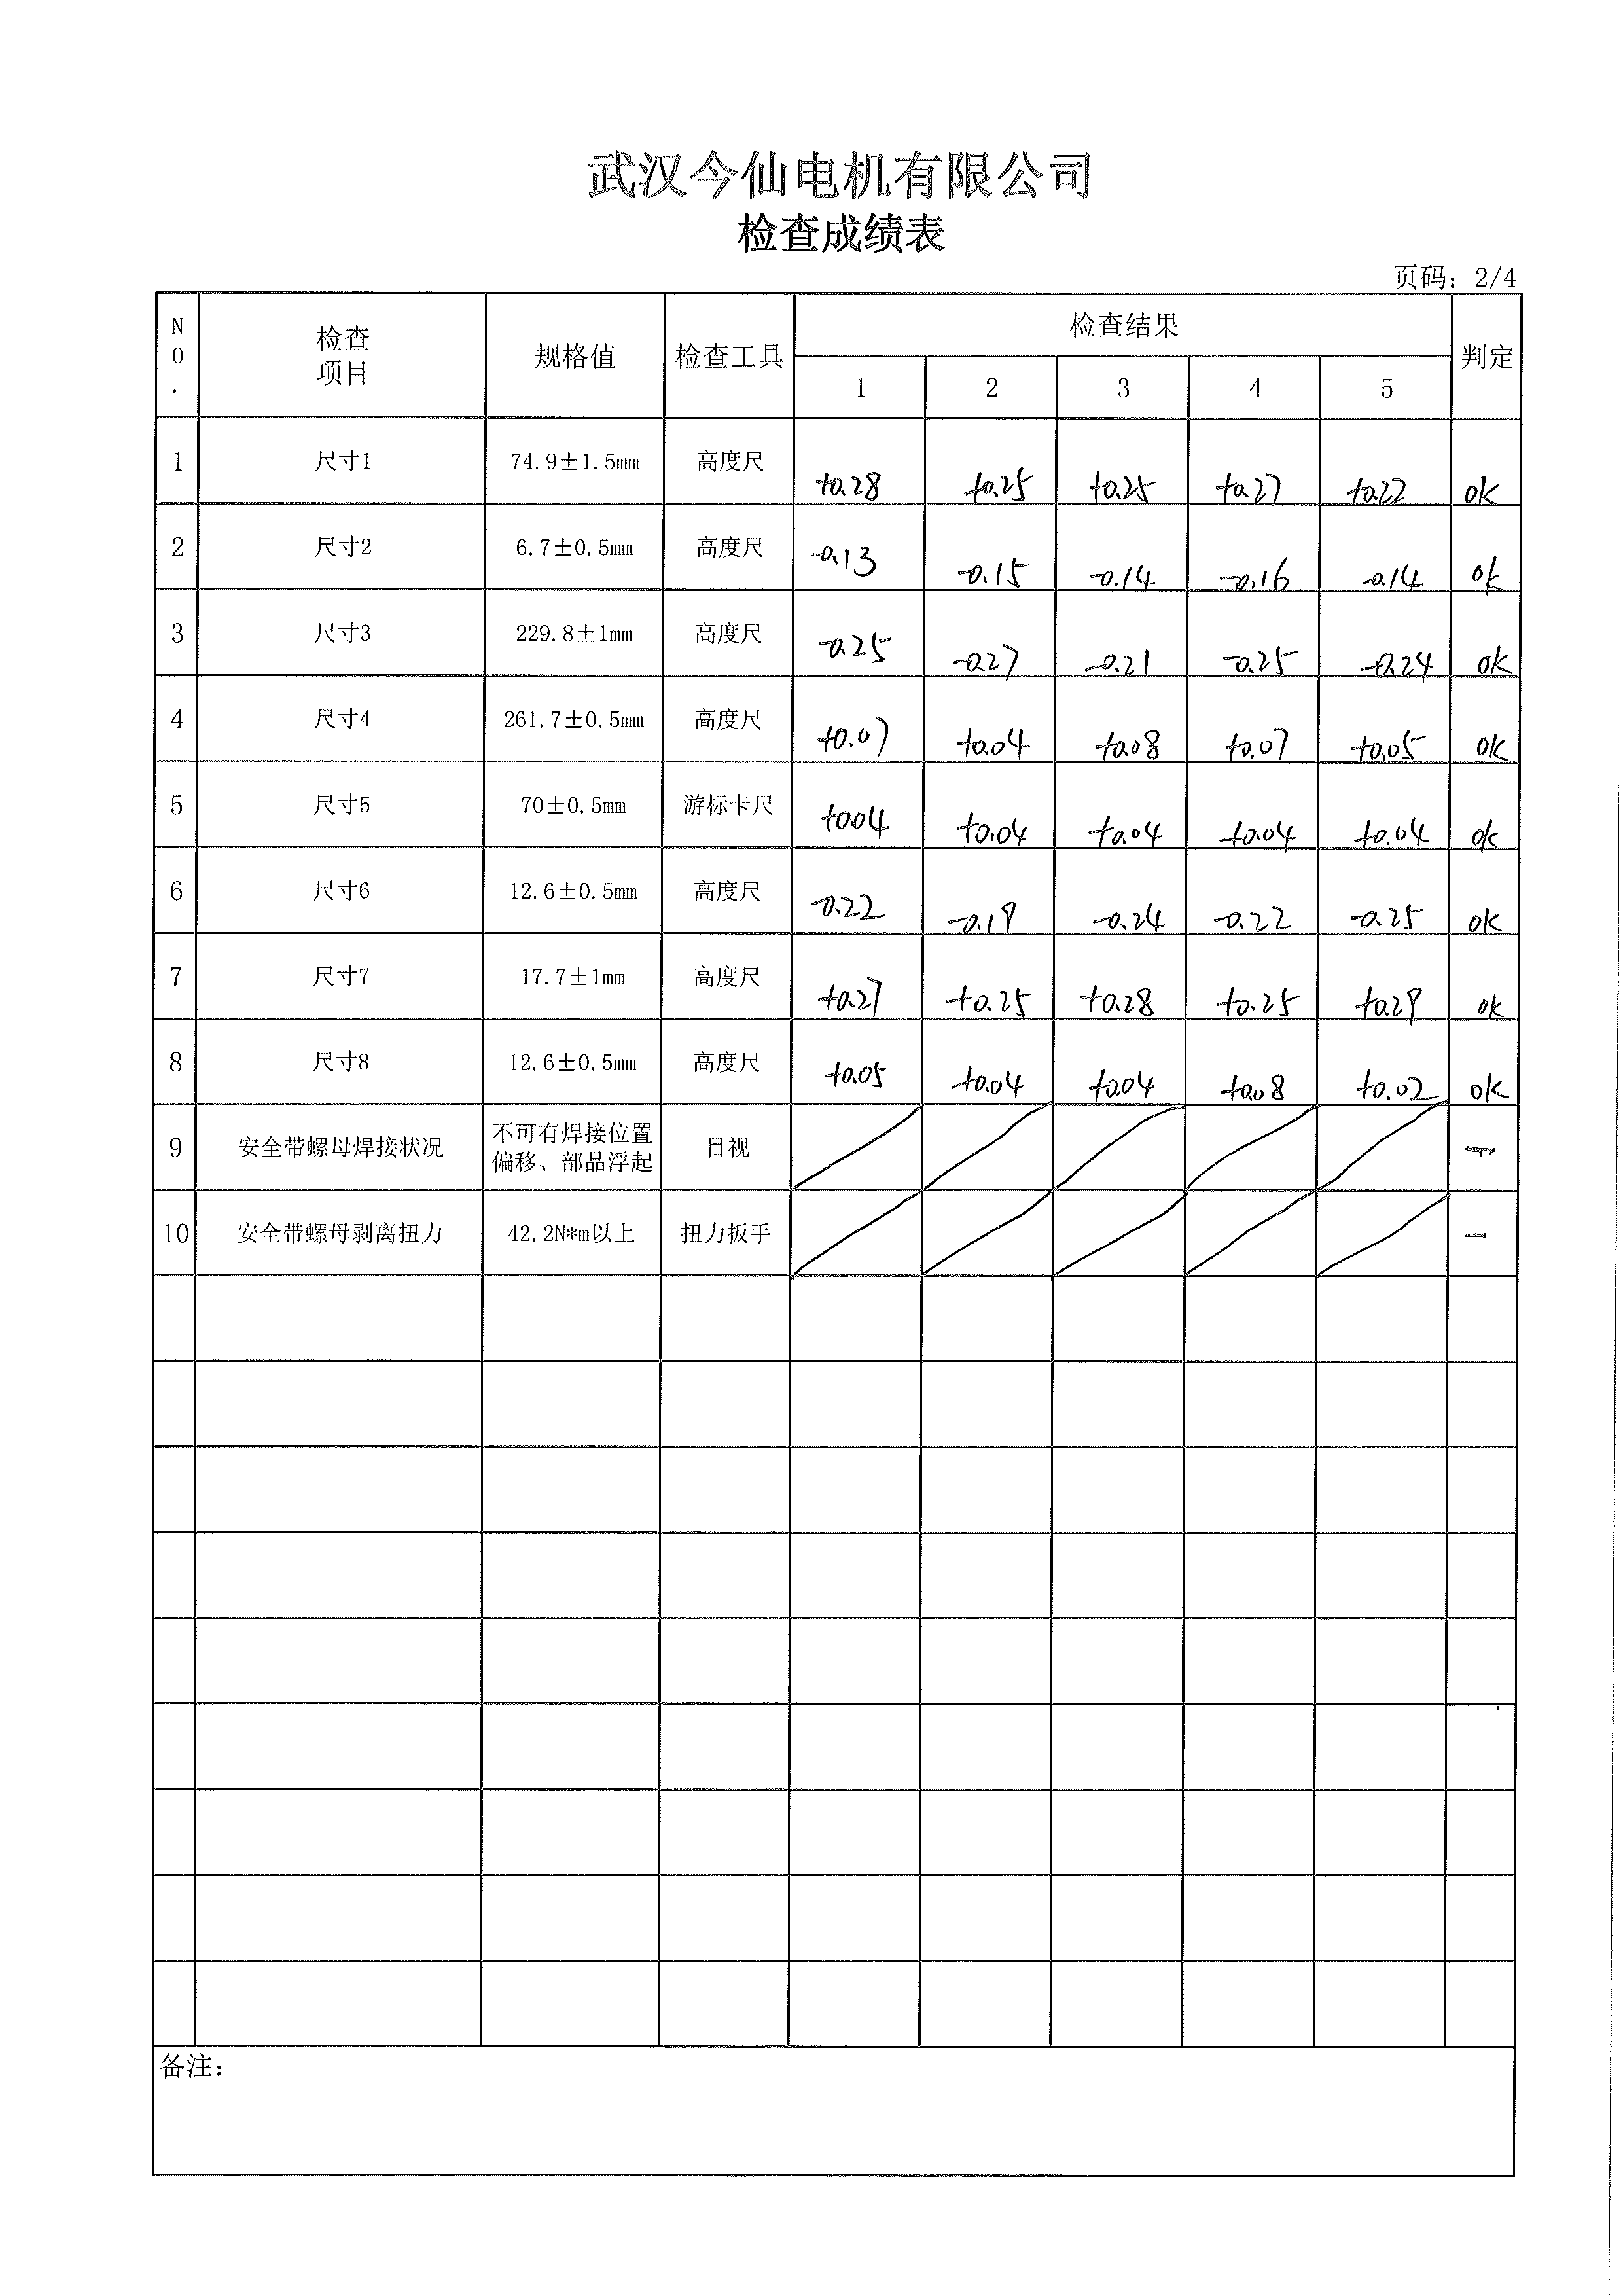 武汉今仙电机有限公司
检查成绩表
页码：2/4
NO. 检查项目 规格值 检查工具 检查结果 判定
1 2 3 4 5
1 尺寸1 74.9±1.5mm 高度尺 +0.28 +0.25 +0.25 +0.27 +0.22 ok
2 尺寸2 6.7±0.5mm 高度尺 -0.13 -0.15 -0.14 -0.16 -0.14 ok
3 尺寸3 229.8±1mm 高度尺 -0.25 -0.27 -0.21 -0.25 -0.24 ok
4 尺寸4 261.7±0.5mm 高度尺 +0.07 +0.04 +0.08 +0.07 +0.05 ok
5 尺寸5 70±0.5mm 游标卡尺 +0.04 +0.04 +0.04 +0.04 +0.04 ok
6 尺寸6 12.6±0.5mm 高度尺 -0.22 -0.19 -0.24 -0.22 -0.25 ok
7 尺寸7 17.7±1mm 高度尺 +0.27 +0.25 +0.28 +0.25 +0.29 ok
8 尺寸8 12.6±0.5mm 高度尺 +0.05 +0.04 +0.04 +0.08 +0.02 ok
9 安全带螺母焊接状况 不可有焊接位置偏移、部品浮起 目视 —
10 安全带螺母剥离扭力 42.2N*m以上 扭力扳手 —
备注：